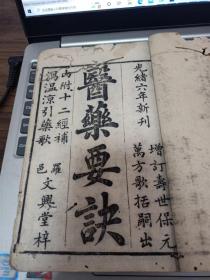 光緒六年新刊
增訂壽世保元
萬方歌括嗣出
醫藥要訣
內附十二經補
瀉温涼引藥歌
羅邑文興堂梓